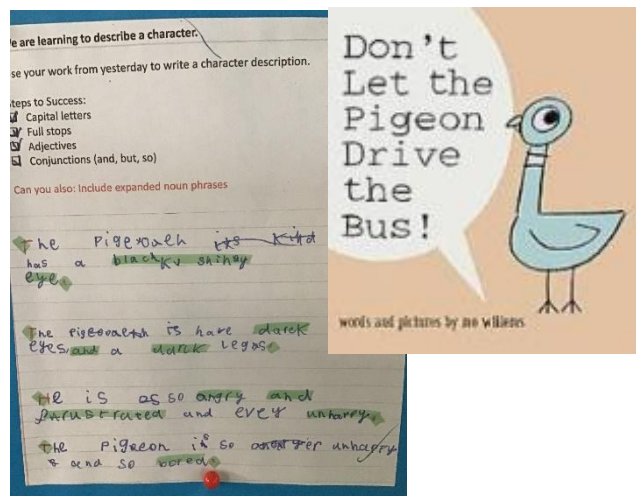 e are learning to describe a character.
se your work from yesterday to write a character description.
teps to Success:
Capital letters
Full stops
Adjectives
Conjunctions (and, but, so)
Can you also: Include expanded noun phrases
The Pigeoaeh its kind
has a blacky shinay
eye.
The pigeoaeh is have darck
eyes and a darck legas.
He is asso angry and
furustrated and evey unharry.
The Pigreon is so unharry
& and so bored.
Don't
Let the
Pigeon
Drive
the
Bus!
words and pictures by mo willems